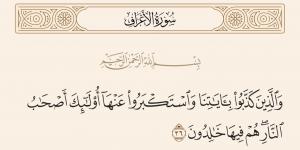 سُورَةُ الأَعۡرَافِ
بِسۡمِ ٱللَّهِ ٱلرَّحۡمَٰنِ ٱلرَّحِيمِ
وَٱلَّذِينَ كَذَّبُواْ بِـَٔايَٰتِنَا وَٱسۡتَكۡبَرُواْ عَنۡهَآ أُوْلَٰٓئِكَ أَصۡحَٰبُ
ٱلنَّارِۖ هُمۡ فِيهَا خَٰلِدُونَ ٣٦